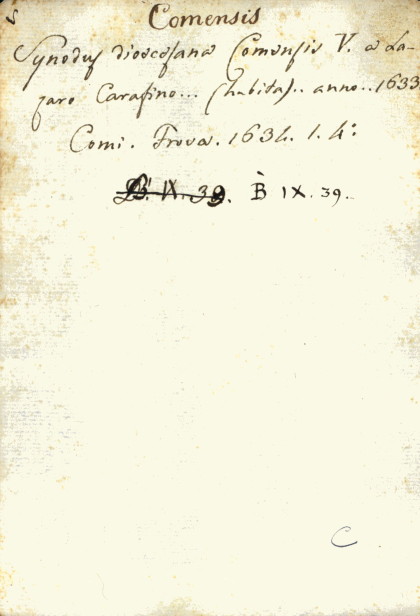 S
Comensis
Synodus dioecesana Comensis V. a La-
zaro Carafino... (habita).. anno..1633
Comi. Frova. 1634. 1. 4°.
B. IX. 39. B IX. 39.
C